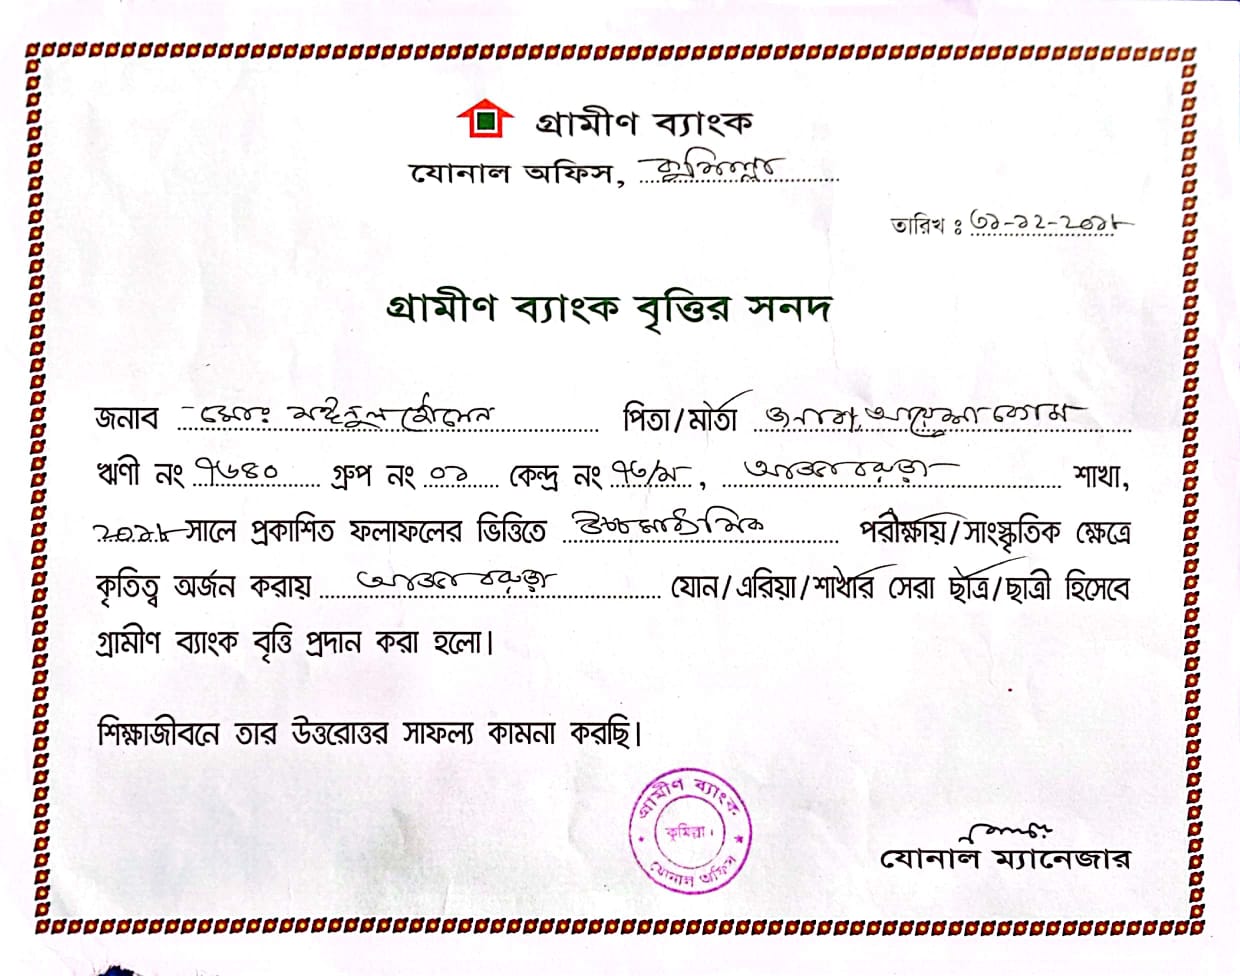 গ্রামীণ ব্যাংক
যোনাল অফিস, কুমিল্লা
তারিখ ঃ ৩১-১২-২০১৮
গ্রামীণ ব্যাংক বৃত্তির সনদ
জনাব মোঃ মাইনুল হোসেন পিতা/মাতা জনাবা, আয়েশা বেগম
ঋণী নং ৭৬৪০ গ্রুপ নং ০১ কেন্দ্র নং ৭৬/ম, শাখা,
২০১৮ সালে প্রকাশিত ফলাফলের ভিত্তিতে উচ্চমাধ্যমিক পরীক্ষায়/সাংস্কৃতিক ক্ষেত্রে
কৃতিত্ব অর্জন করায় যোন/এরিয়া/শাখার সেরা ছাত্র/ছাত্রী হিসেবে
গ্রামীণ ব্যাংক বৃত্তি প্রদান করা হলো।
শিক্ষাজীবনে তার উত্তরোত্তর সাফল্য কামনা করছি।
গ্রামীণ ব্যাংক
কুমিল্লা।
যোনাল অফিস
যোনাল ম্যানেজার